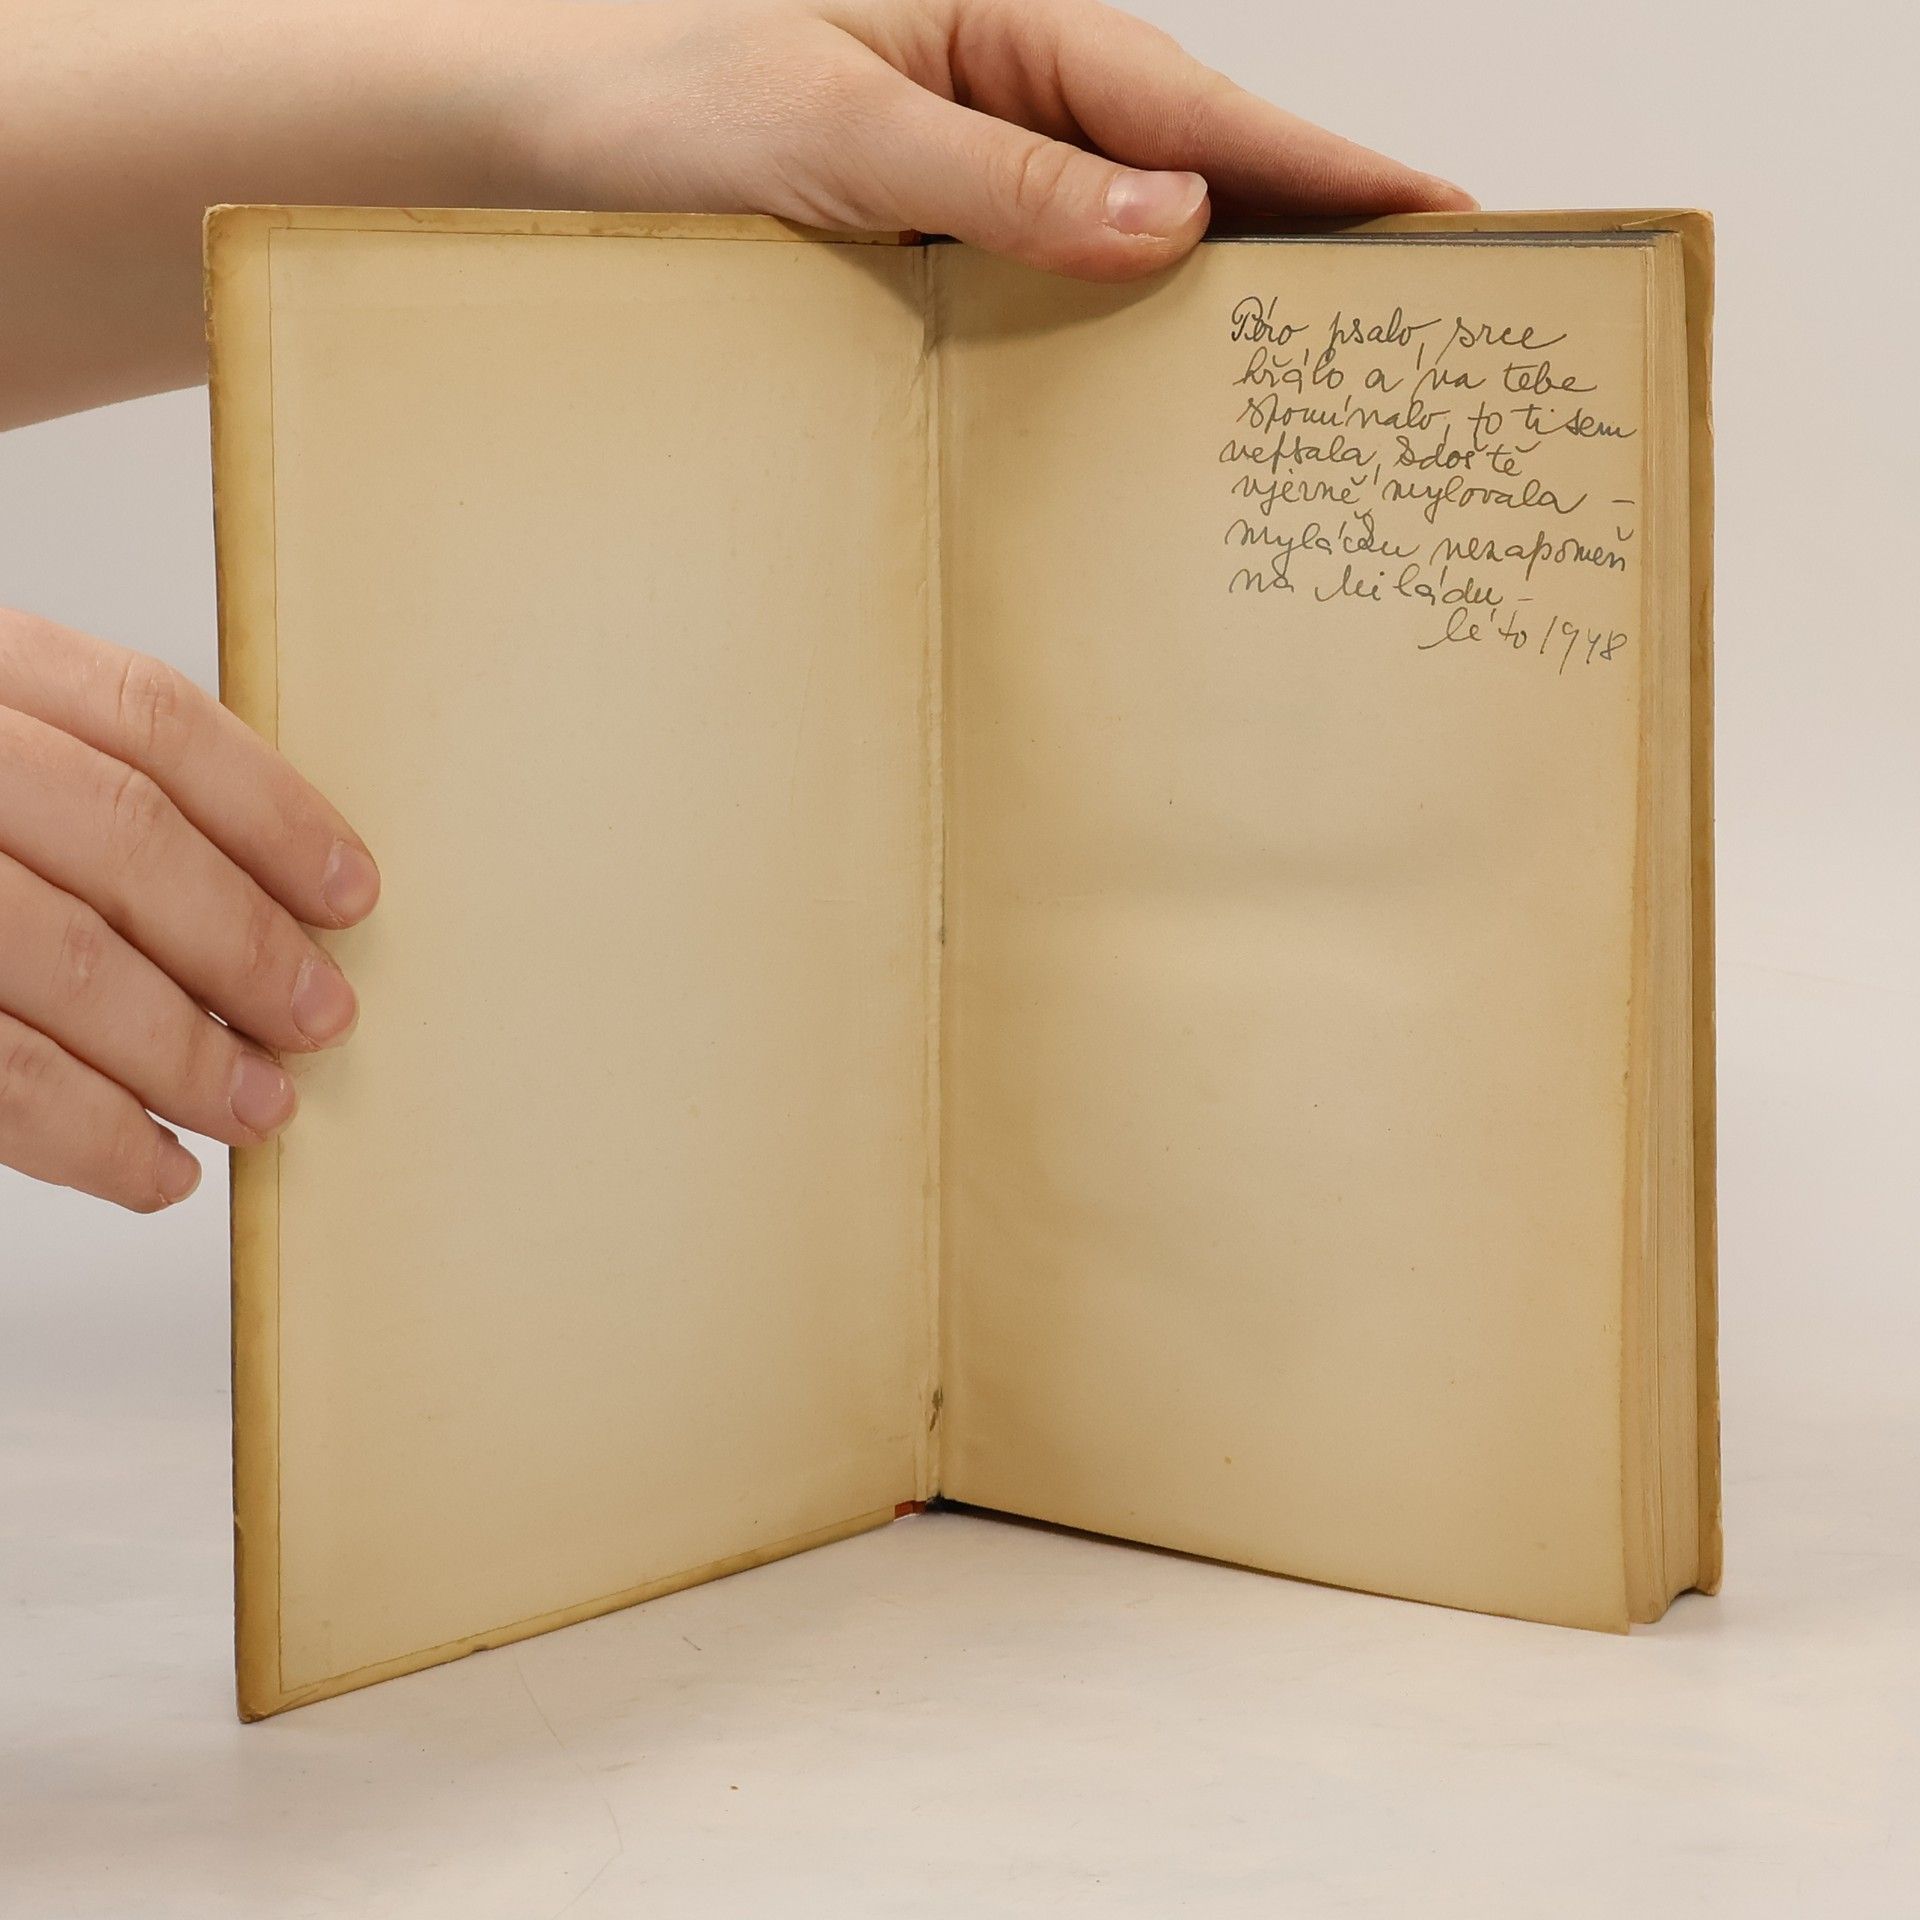 Péro psalo, srce
hřálo a na tebe
spomínalo, to ti sem
nepsala, sdos tě
vjerně mylovala –
myláčku nezapomeň
na Miládu –
léto 1948